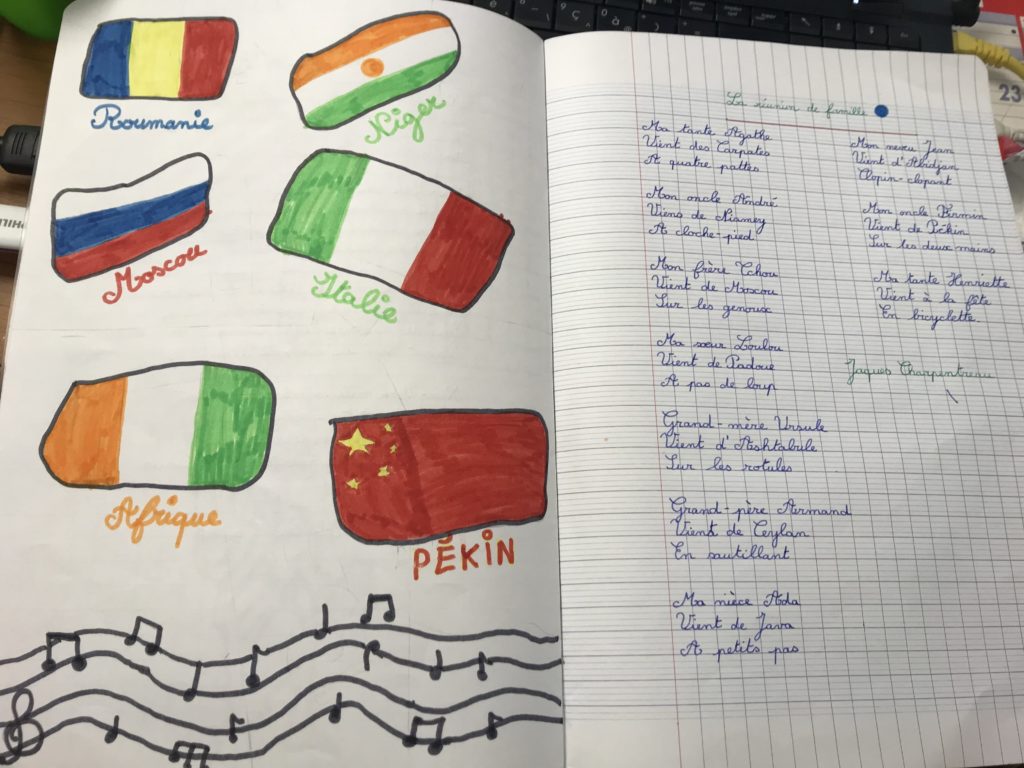 Roumanie
Niger
Moscou
Italie
Afrique
PĔKIN
La réunion de famille
Ma tante Agathe
Vient des Carpates
A quatre pattes
Mon oncle André
Viens de Niamey
A cloche-pied
Mon frère Tchou
Vient de Moscou
Sur les genoux
Ma sœur Loulou
Vient de Padoue
A pas de loup
Grand-mère Ursule
Vient d'Ashtabule
Sur les rotules
Grand-père Armand
Vient de Ceylan
En sautillant
Ma nièce Ada
Vient de Java
A petits pas
Mon neveu Jean
Vient d'Abidjan
Clopin-clopant
Mon oncle Firmin
Vient de Pékin
Sur les deux mains
Ma tante Henriette
Vient à la fête
En bicyclette.
Jaques Charpentreau
23